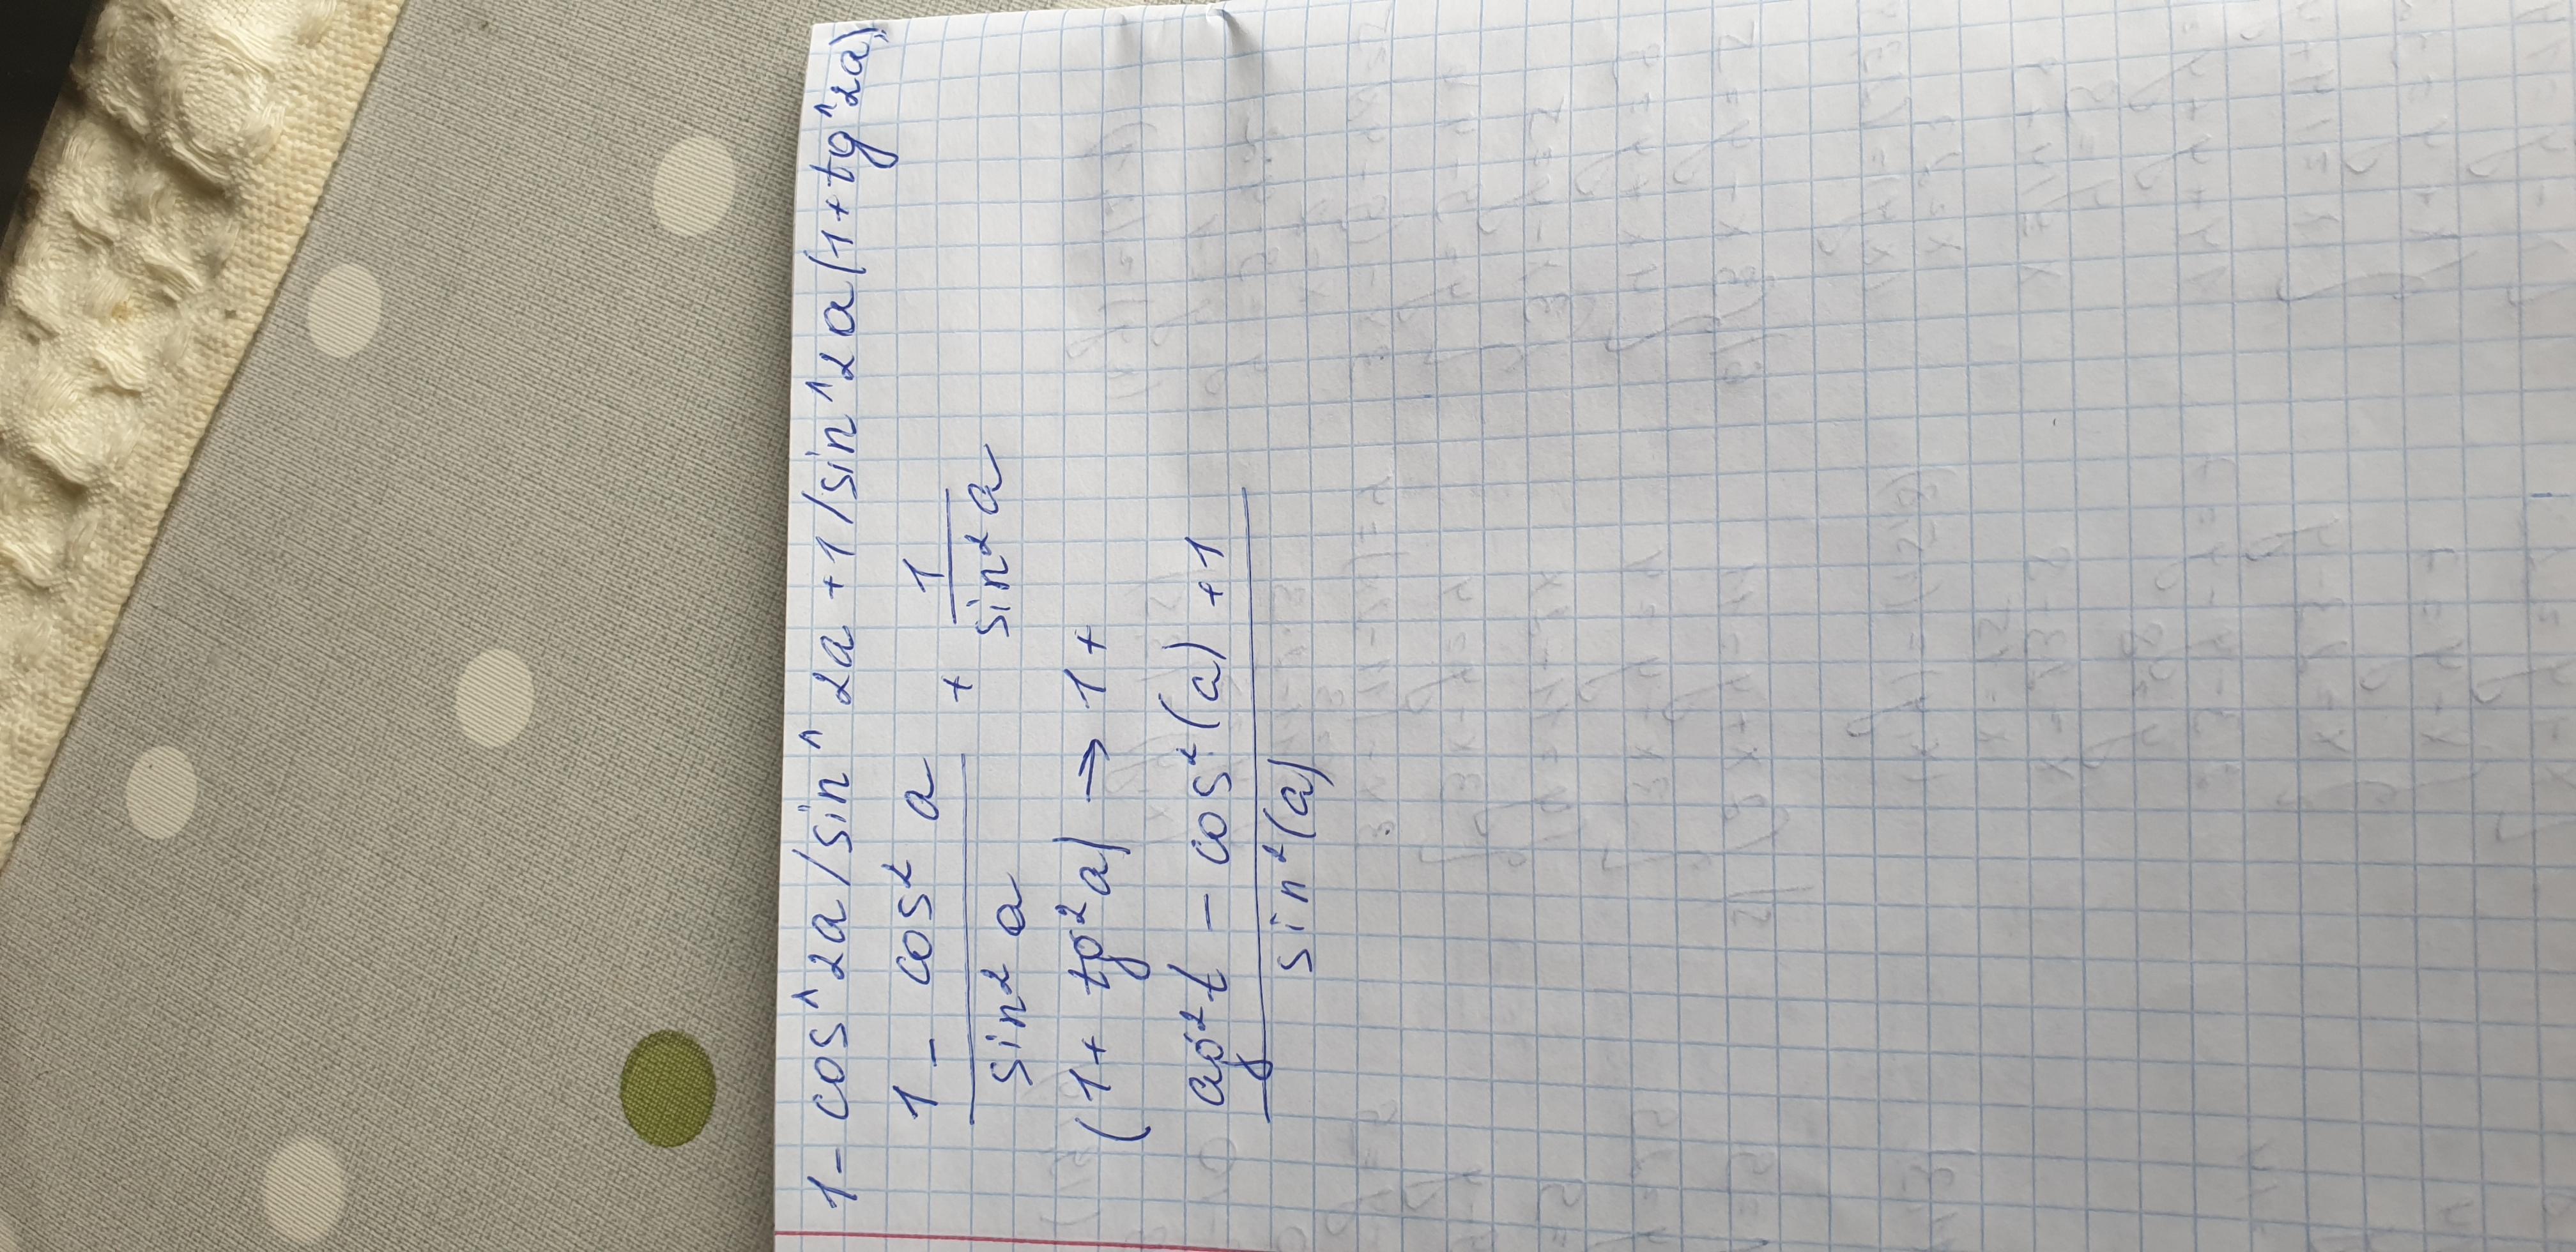 1 - cos^2a/sin^2a + 1/sin^2a(1+tg^2a),
1 - cos² a
+ 1
sin² a
sin² a
(1 + tg² a) → 1 +
- cos² (a) + 1
sin² (a)